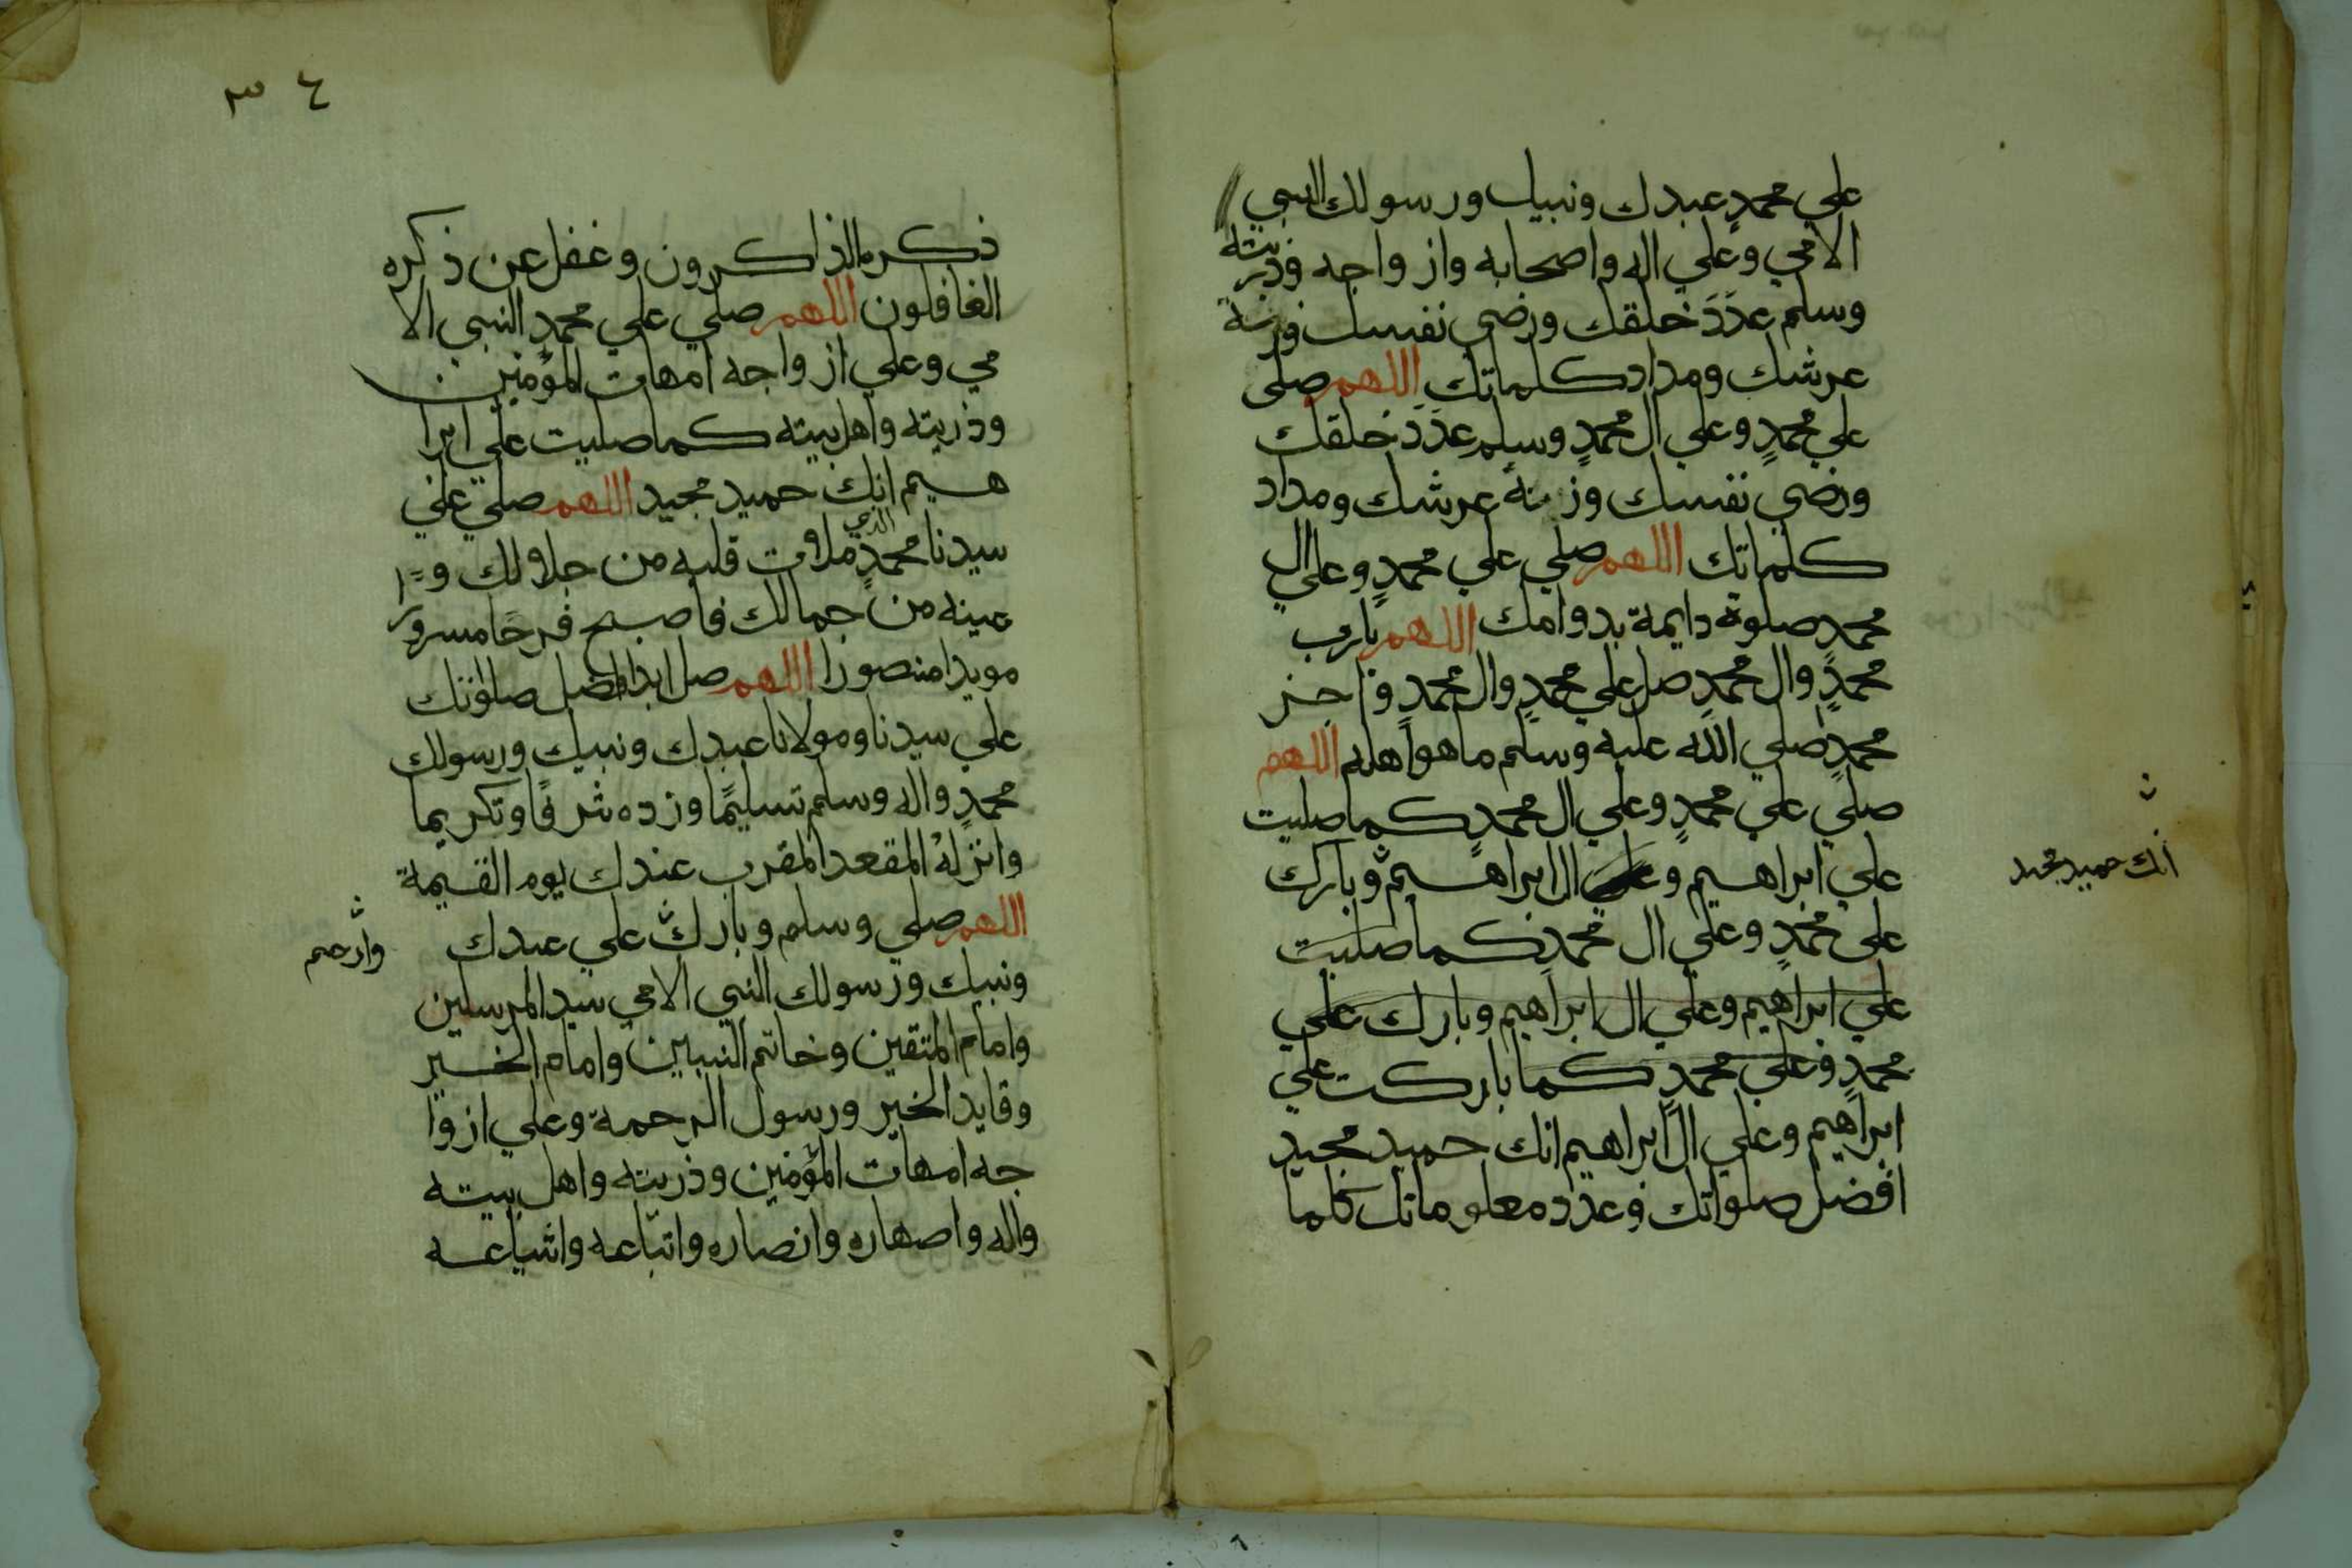 علي محمدٍ عبدك ونبيك ورسولك النبي
الامي وعلي اله واصحابه وازواجه وذريته
وسلم عدَدَ خلقك ورضي نفسك وزنة
عرشك ومداد كلماتك اللهم صلى
علي محمدٍ وعلي ال محمدٍ وسلم عدَدَ خلقك
ورضي نفسك وزنة عرشك ومداد
كلماتك اللهم صلي علي محمدٍ وعلي ال
محمدٍ صلوة دايمة بدوامك اللهم يارب
محمدٍ وال محمدٍ صل علي محمدٍ وال محمدٍ واجز
محمدٍا صلي الله عليه وسلم ما هو اهله اللهم
صلي علي محمدٍ وعلي ال محمدٍ كما صليت
علي ابراهيم وعلي ال ابراهيم وبارك
انك حميد مجيد
علي محمدٍ وعلي ال محمدٍ كما صليت
علي ابراهيم وعلي ال ابراهيم وبارك علي
محمدٍ وعلي محمدٍ كما باركت علي
ابراهيم وعلي ال ابراهيم انك حميد مجيد
افضل صلواتك وعدد معلوماتك كلما
٣٤
ذكره الذاكرون وغفل عن ذكره
الغافلون اللهم صلي علي محمدٍ النبي الا
مي وعلي ازواجه امهات المؤمنين
وذريته واهل بيته كما صليت علي ابرا
هيم انك حميد مجيد اللهم صلي علي
سيدنا محمدٍ الذي ملات قلبه من جلالك و
عينه من جمالك فاصبح فرحًا مسرور
مويدا منصورا اللهم صل ابدا افضل صلواتك
علي سيدنا ومولانا عبدك ونبيك ورسولك
محمدٍ واله وسلم تسليمًا وزده شرفًا وتكريما
وانزله المقعد المقرب عندك يوم القيمة
اللهم صلي وسلم وبارك علي عبدك
وارحم
ونبيك ورسولك النبي الامي سيد المرسلين
وامام المتقين وخاتم النبيين وامام الخير
وقايد الخير ورسول الرحمة وعلي ازوا
جه امهات المؤمنين وذريته واهل بيته
واله واصهاره وانصاره واتباعه واشياعه